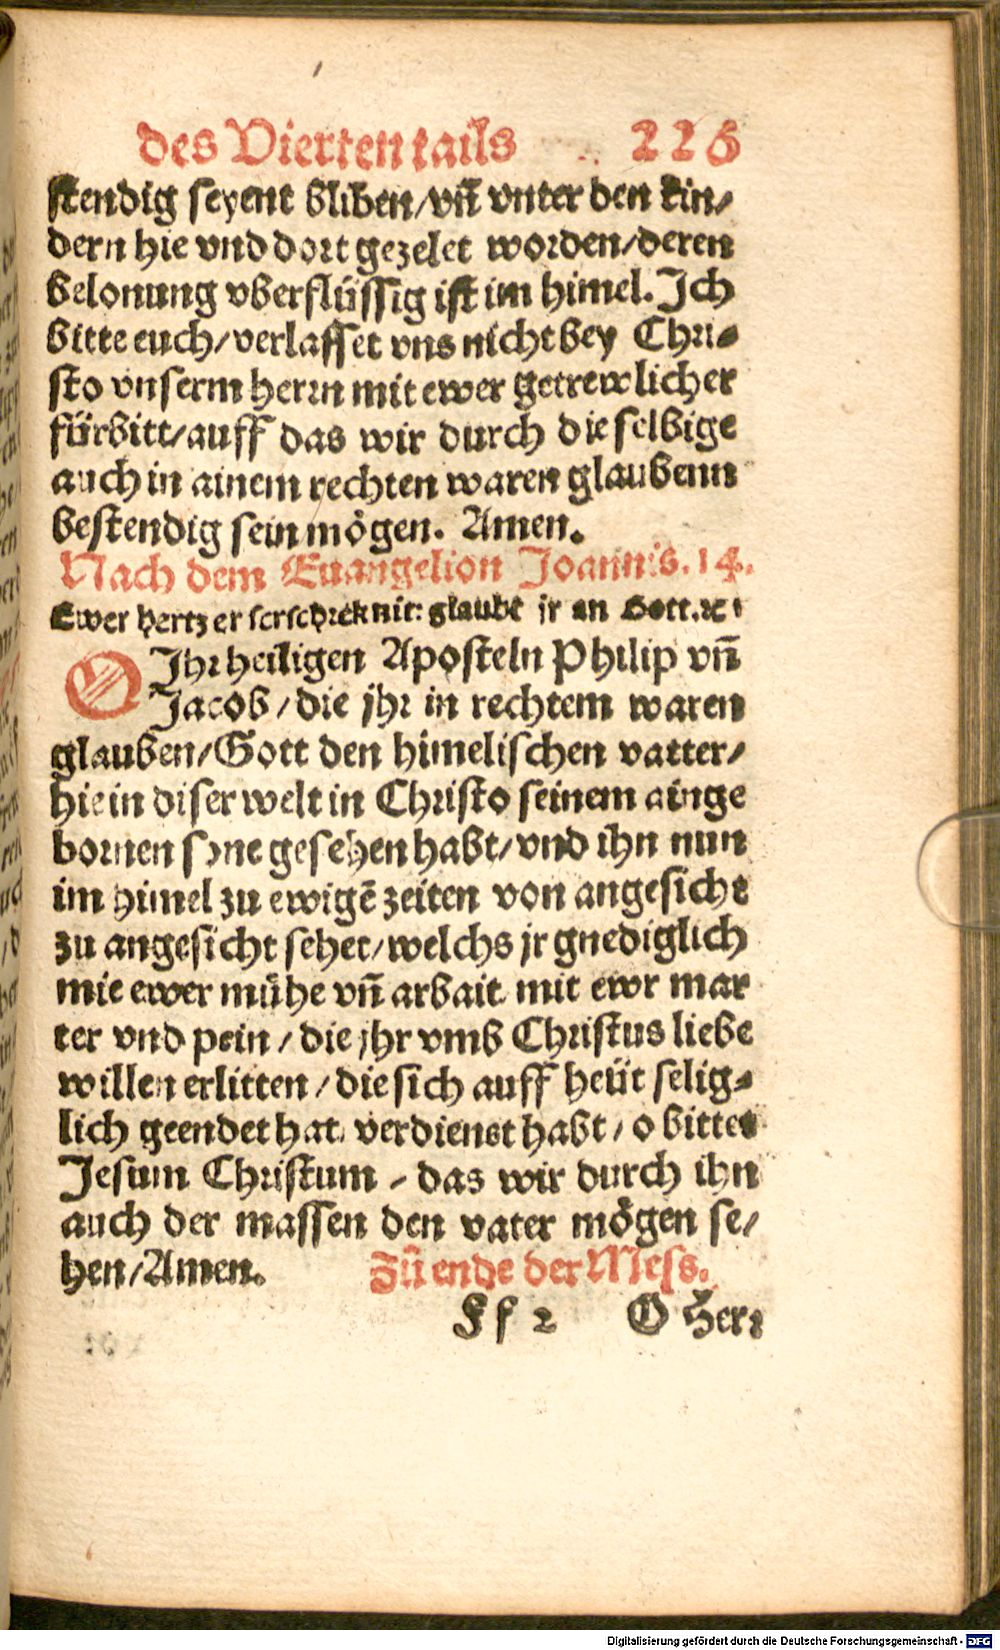 des Vierten tails 226
stendig seyent bliben/vn̄ vnter den kin/
dern hie vnd dort gezelet worden/deren
belonung vberflüssig ist im himel. Ich
bitte euch/verlasset vns nicht bey Chri⸗
sto vnserm herrn mit ewer getrewlicher
fürbitt/auff das wir durch die selbige
auch in ainem rechten waren glaubenn
bestendig sein mögen. Amen.
Nach dem Euangelion Joannis. 14.
Ewer hertz erserschrek nit: glaubt jr an Gott. ꝛc.
O Ihr heiligen Aposteln Philip vn̄
Jacob/die jhr in rechtem waren
glauben/Gott den himelischen vatter/
hie in diser welt in Christo seinem ainge
bornen sone gesehen habt/vnd ihn nun
im himel zu ewigē zeiten von angesicht
zu angesicht sehet/welchs jr gnediglich
mit ewer mühe vn̄ arbait mit ewr mar
ter vnd pein/die jhr vmb Christus liebe
willen erlitten/die sich auff heüt selig⸗
lich geendet hat verdienet habt/o bittet
Jesum Christum/das wir durch ihn
auch der massen den vater mögen se/
hen/Amen. Zū ende der Mess.
Ff 2 O Herr
Digitalisierung gefördert durch die Deutsche Forschungsgemeinschaft - DFG